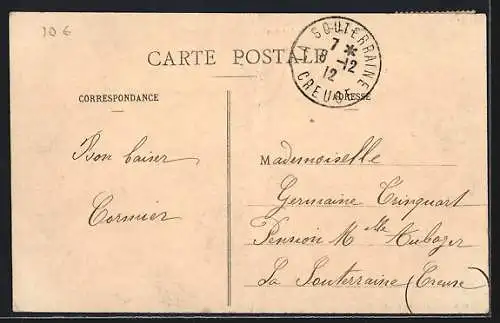 10 6
CARTE POSTALE
LA SOUTERRAINE
7 *
8 -12
12
CREUSE
CORRESPONDANCE
ADRESSE
Bon baiser
Cormier
Mademoiselle
Germaine Trinquart
Pension Mlle
La Souterraine (Creuse)